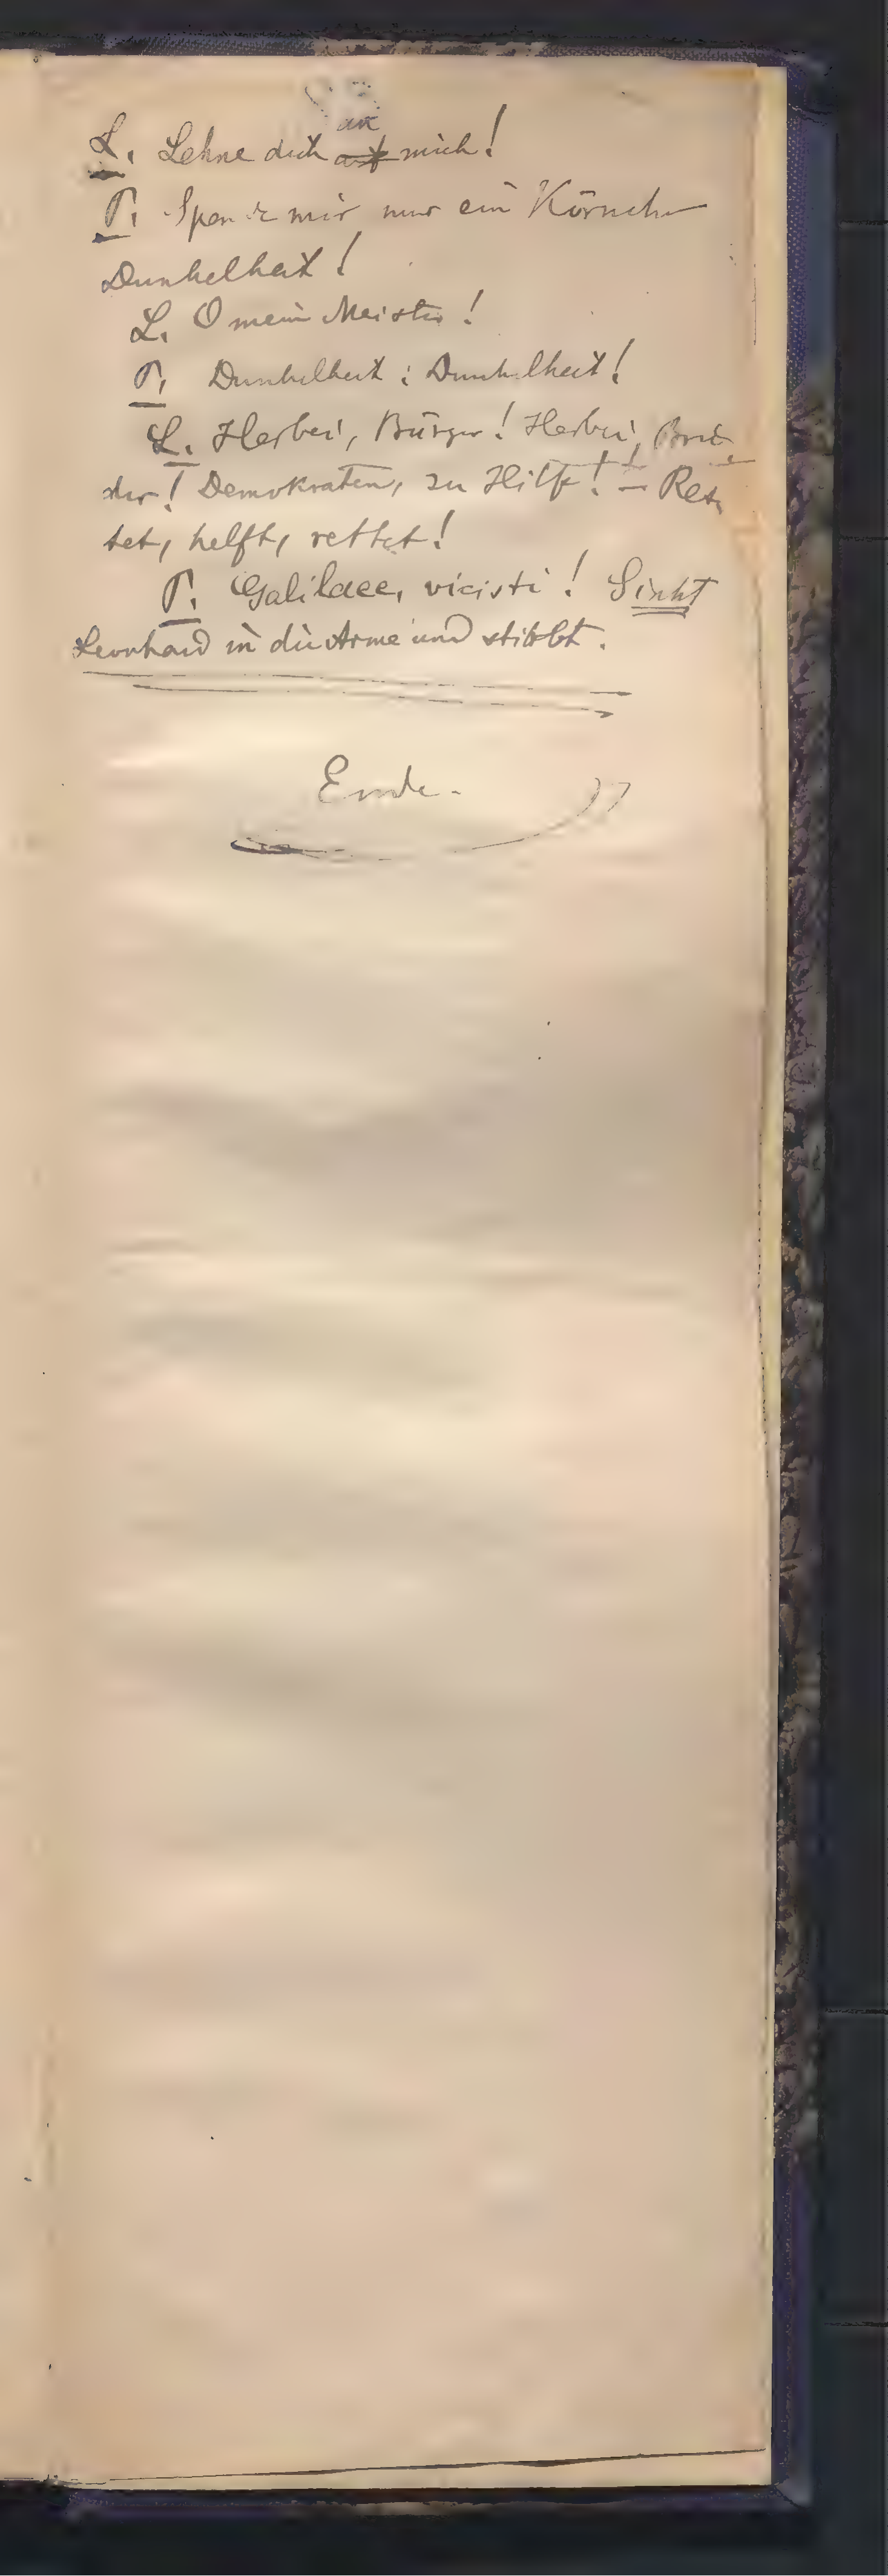 L. Lehne dich an auf mich!
P. Spende mir nur ein Körnchen
Dunkelheit!
L. O mein Meister!
P. Dunkelheit: Dunkelheit!
L. Herbei, Bürger! Herbei, Brü-
der! Demokraten, zu Hilfe! – Ret-
tet, helft, rettet!
P. Galilaee, vicisti! Sinkt
Leonhard in die Arme und stirbt.
Ende.